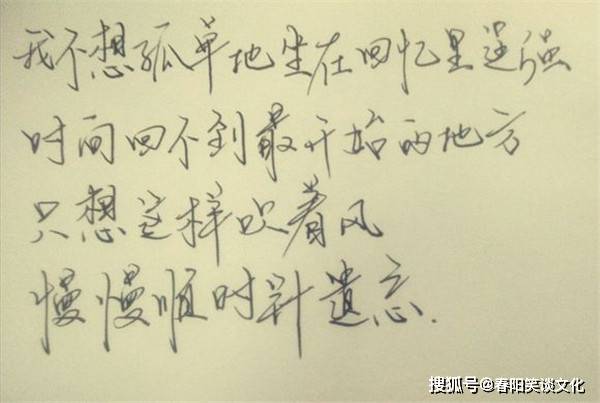 我不想孤单地坐在回忆里逞强
时间回不到最开始的地方
只想这样吹着风
慢慢顺时针遗忘.
搜狐号@春阳笑谈文化